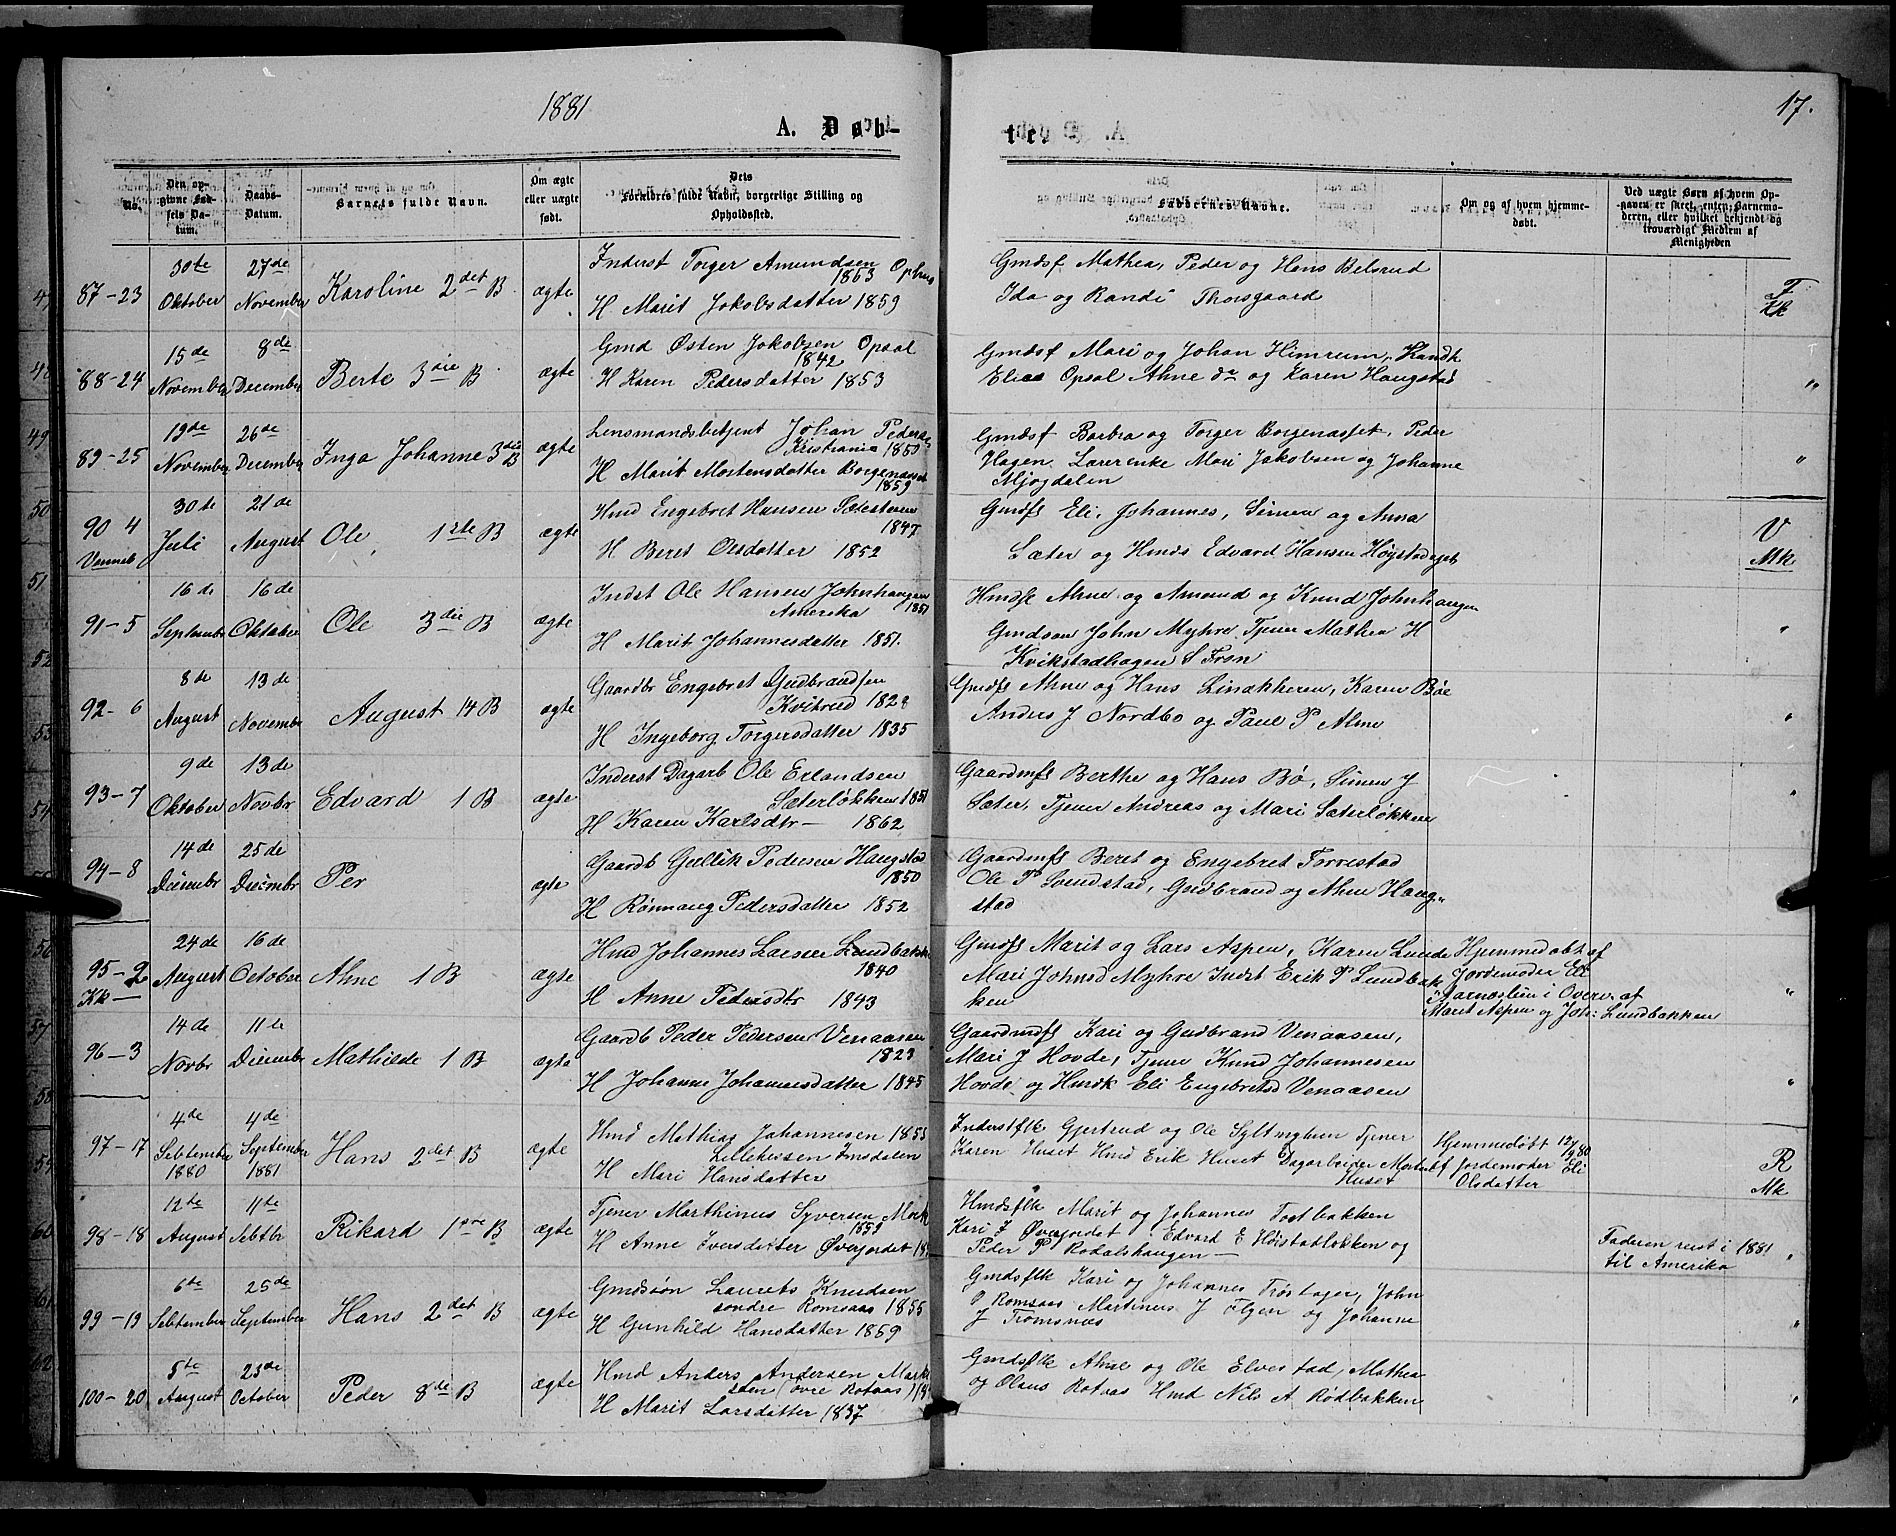 1881
17.
A. Døb-
te.
No.
Den op-
givne Fød-
sels Da-
tum.
Daabs-
Datum.
Barnets fulde Navn.
Om ægte
eller uægte
født.
Dets
Forældres fulde Navn, borgerlige Stilling og
Opholdssted.
Faddernes Navne.
Om og af hvem hjemme-
døbt.
Ved uægte Børn af hvem Op-
gaven er skeet, enten Barnemo-
deren, eller hvilket bekjendt og
troværdigt Medlem af
Menigheden
87-23
30te
Oktober
27de
November
Karoline 2det B.
ægte
Inderst Torger Amundsen
1853 Ophus
H Marit Jakobsdatter 1859
Gmdsf Mathea, Peder og Hans Belsrud
Ida og Randi Thorsgaard
F
Kk
88-24
15de
November
8de
December
Berte 3die B
ægte
Gmd Østen Jakobsen Opsal
1842
H Karen Pedersdatter 1853
Gmdsf Mari og Johan Himrum, Kandt
Elias Opsal Ahne do og Karen Haugstad
"
89-25
19de
November
26de
December
Inga Johanne 3die B
ægte
Lensmandsbetjent Johan Pedersen
Kristiania 1850
H Marit Mortensdatter Borgenaasset
1859
Gmdsf Barbra og Torger Borgenasset, Peder
Hagen Lærerenke Mari Jakobsen og Johanne
Mjogdalen
"
90 4
Venneb
30te
Juli
21de
August
Ole 1ste B
ægte
Hmd Engebret Hansen Sætestuen
1847
H Beret Olsdatter 1852
Gmdfs Eli, Johannes, Simen og Anna
Sæter og Hmds Edvard Hansen Høystadeget
V
Mk
91-5
16de
September
16de
Oktober
Ole 3die B
ægte
Indst Ole Hansen Johnhaugen
Amerika 1851
H Marit Johannesdatter 1851.
Hmdsf Ahne og Amund og Knud Johnhaugen
Gmdsøn John Myhre Tjener Mathea H
Kvikstadhagen S Fron
"
92-6
8de
August
13de
Novembr
August 14 B
ægte
Gaardbr Engebret Gudbrandsen
Kvitrud 1828
H Ingeborg Torgersdatter 1835
Gmdfs Ahne og Hans Linakkeren, Karen Bøe
Anders J Nordbo og Paul P Alme
"
93-7
9de
Oktober
13de
Novbr
Edvard 1 B
ægte
Inderst Dagarb Ole Erlandsen
Sæterløkken 1851
H Karen Karlsdtr — 1862
Gaardmfs Berthe og Hans Bø, Simen J
Sæter, Tjener Andreas og Mari Sæterløkken
"
94-8
14de
Decembr
25de
Decembr
Per
ægte
Gaardb Gullik Pedersen Haugstad
1850
H Rønnaug Pedersdatter 1852
Gaardmfs Beret og Engebret Torrestad
Ole P Svendstad, Gudbrand og Ahne Haug-
stad
95-2
Kk—
24de
August
16de
October
Ahne 1 B
ægte
Hmd Johannes Larsen Lundbakken
1840
H Anne Pedersdtr 1843
Gmdfs Marit og Lars Aspen, Karen Lunde
Mari Johnsd Myhre Indst Erik P Lundbak
ken
Hjemmedøbt af
Jordemoder Eli
Aarnæslien i Overv. af
Marit Aspen og Joh: Lundbakken
"
96-3
14de
Novbr
11te
Decembr
Mathilde 1 B
ægte
Gaardb Peder Pedersen Venaasen
1823
H Johanne Johannesdatter 1845
Gaardmfs Kari og Gudbrand Venaasen,
Mari J Hovde, Tjener Knud Johannesen
Hovde og Hmdk Eli Engebretsd Venaasen
"
97-17
4de
September
1880
4de
September
1881
Hans 2det B
ægte
Hmd Mathias Johannesen 1853
Lilleteigen Imsdalen
H Mari Hansdatter
Inderstflk Gjertrud og Ole Sylteglien Tjener
Karen Huset Hmd Erik Huset Dagarbeider Morten
Huset
Hjemmedøbt 12/9 80
af Jordemoder Eli
Olsdatter
R
Mk
98-18
12te
August
11te
Sebtbr
Rikard 1ste B
ægte
Tjener Marthinus Syversen Moek
1859
H Anne Iversdatter Øverjordet
Hmdsflk Marit og Johannes Tostbakken
Kari J Øverjordet, Edvard E Høistadløkken og
Peder P Rodalshaugen —
Faderen reist i 1881
til Amerika
"
99-19
6te
Sebtember
25de
September
Hans 2det B
ægte
Gmdsøn Laurets Knudsen
søndre Romsaas 1855
H Gunhild Hansdatter 1859
Gmdsflk Kari og Johannes Trøstager, John
P Romsaas Martinus J Elgen og Johanne
J Tromsnæs
"
100-20
5te
August
23de
October
Peder 8de B
ægte
Hmd Anders Andersen Mark
støen (øvre Rotvas)
H Marit Larsdatter 1837
Gmdsflk Ahne og Ole Elvestad, Mathea
og Olaus Rotvas Hmd Nils A Rødbakken
"